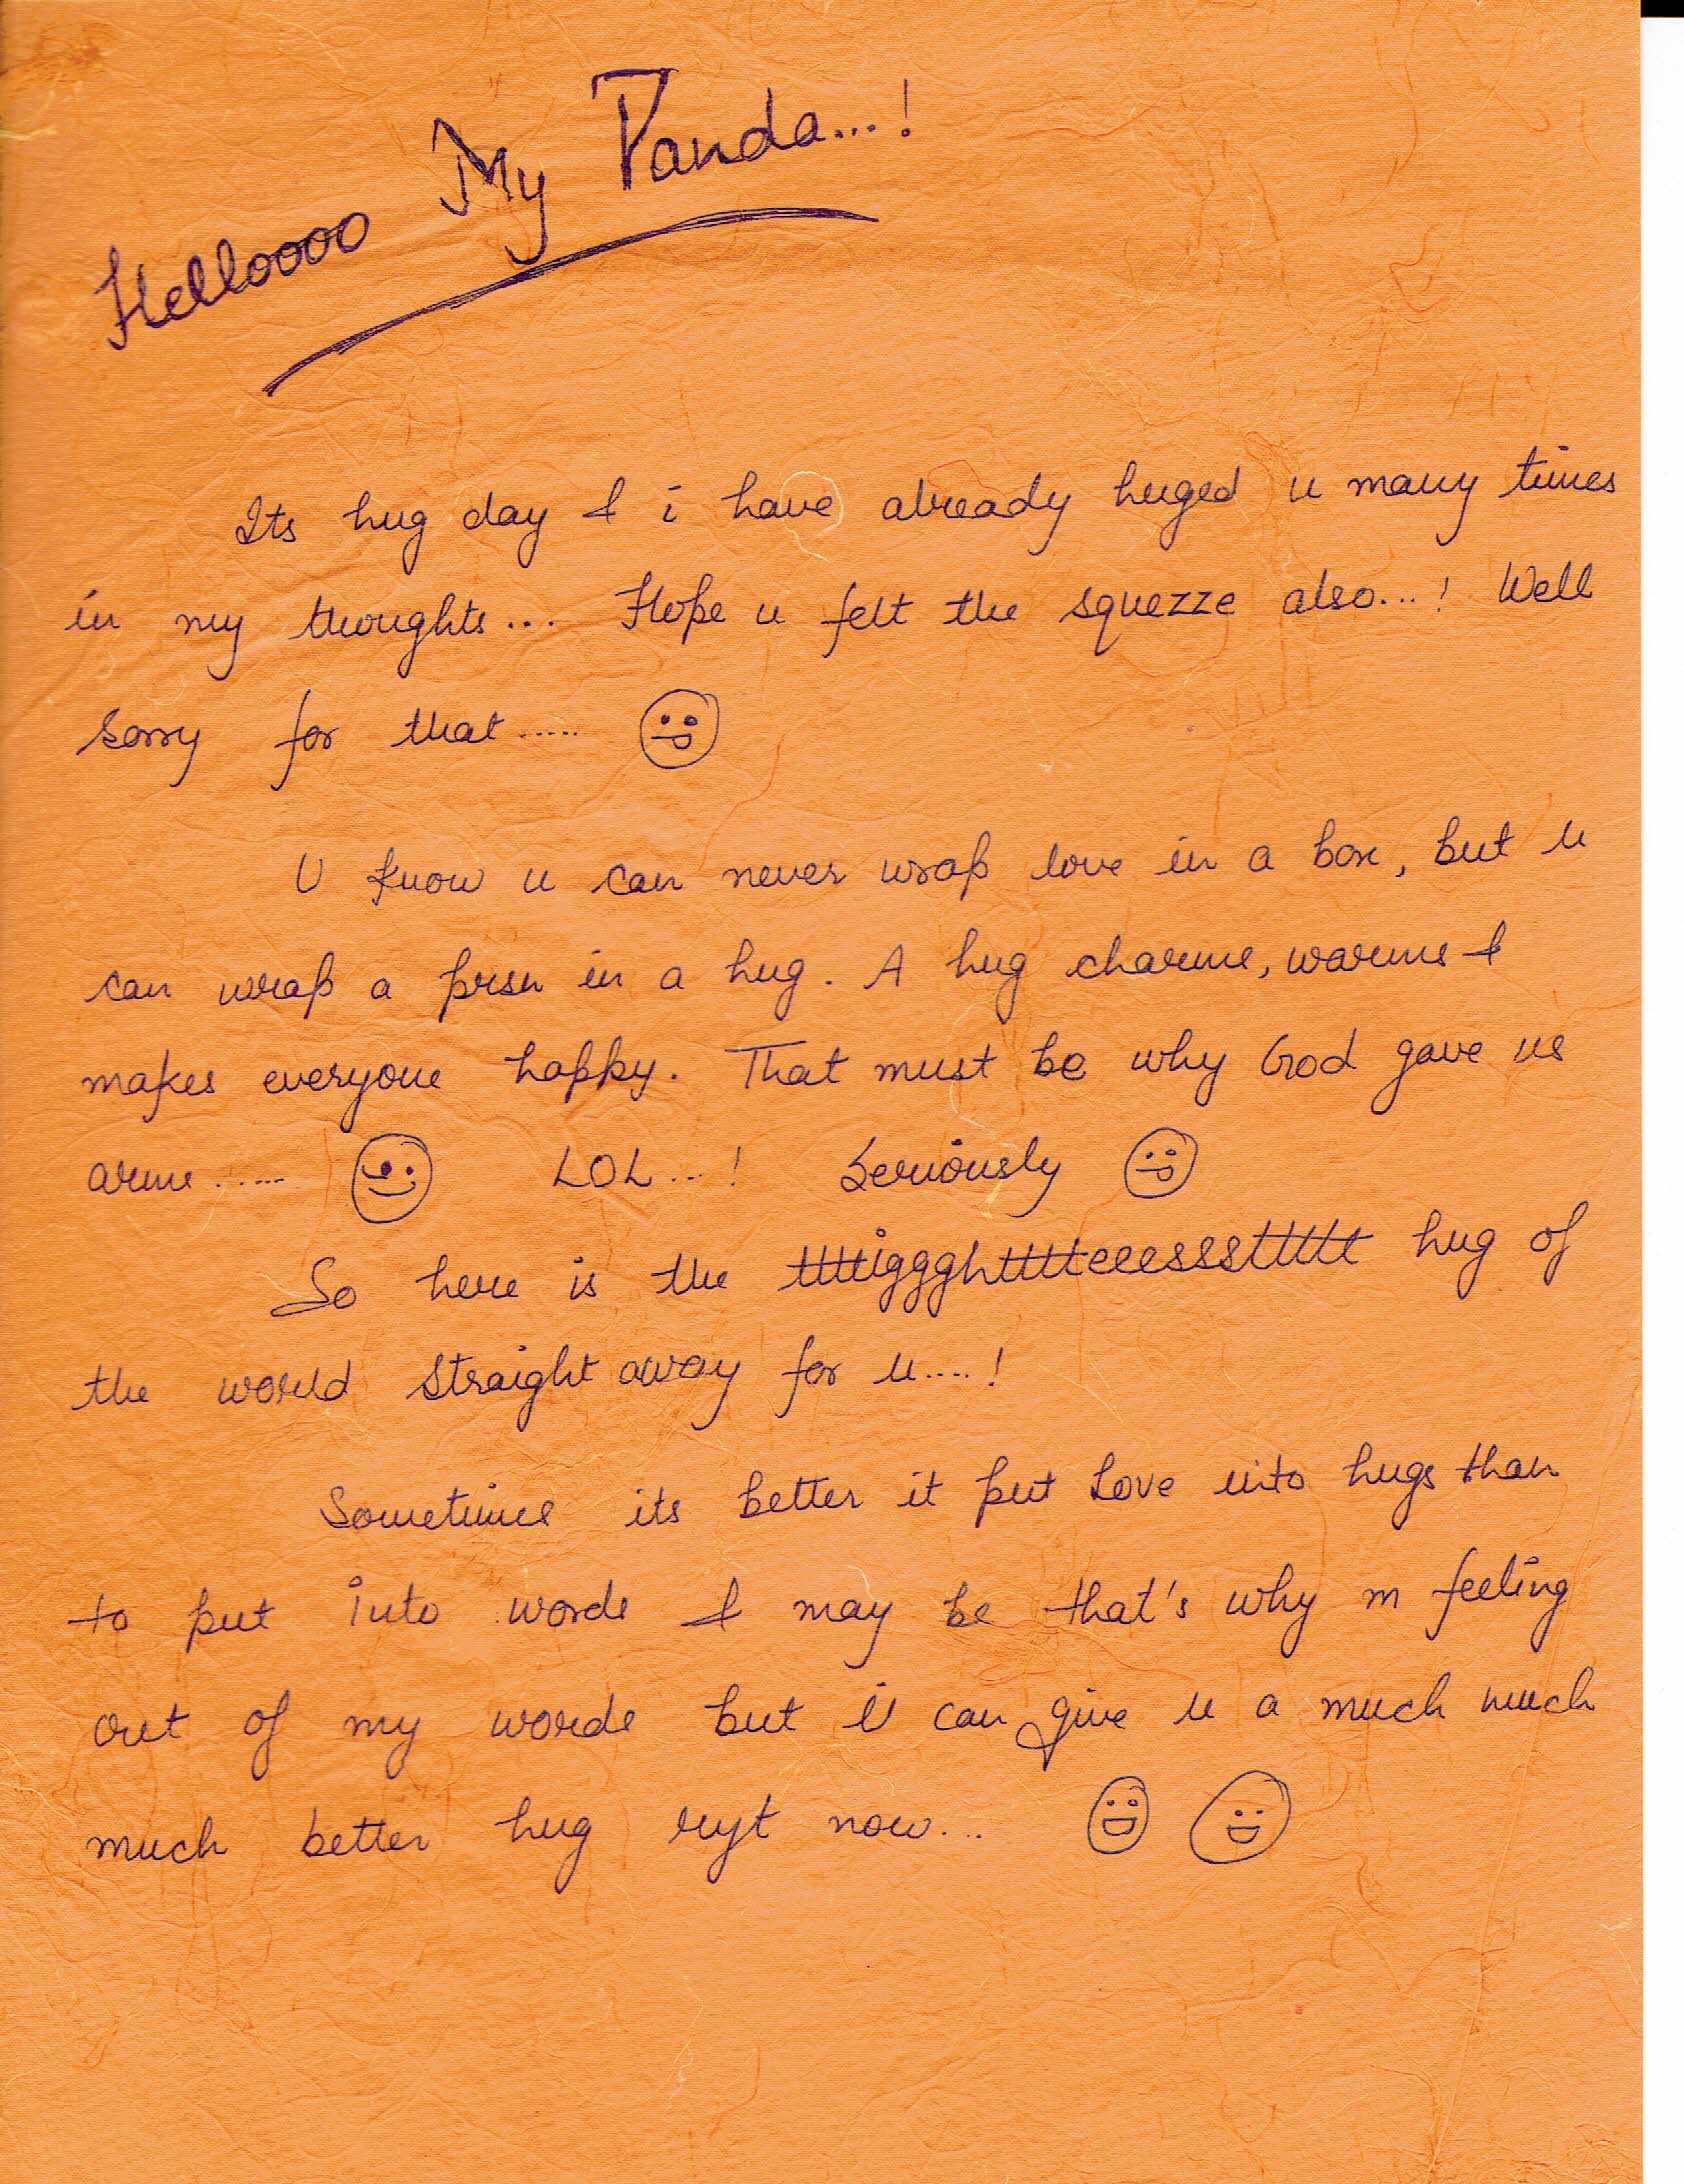 Helloooo My Panda...!
Its hug day & i have already huged u many times
in my thoughts... Hope u felt the squezze also...! Well
sorry for that.....
U know u can never wrap love in a box, but u
can wrap a prsn in a hug. A hug charms, warms &
makes everyone happy. That must be why God gave us
arms..... LOL...! Seriously
So here is the ttttiggghtttteeessstttttt hug of
the world straight away for u....!
Sometimes its better it put love into hugs than
to put into words & may be that's why m feeling
out of my words but i can give u a much much
much better hug ryt now...